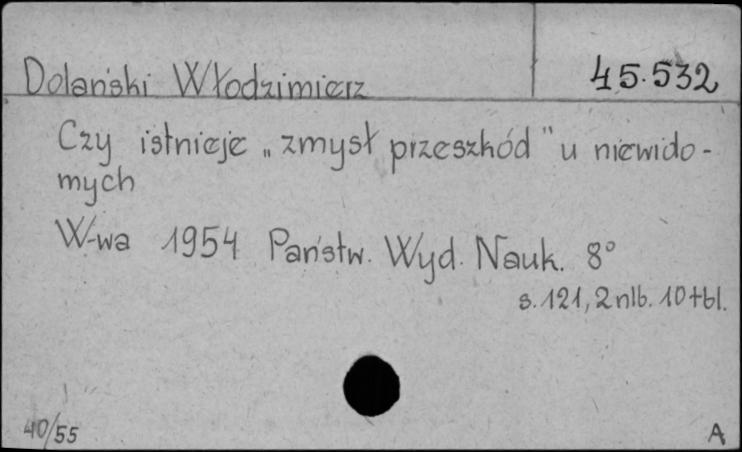 Dolański Włodzimierz
45.532
Czy istnieje „zmysł przeszkód" u niewido-
mych
W-wa 1954 Państw. Wyd. Nauk. 8°
s. 121, 2 nlb. 10 tbl.
40/55
A